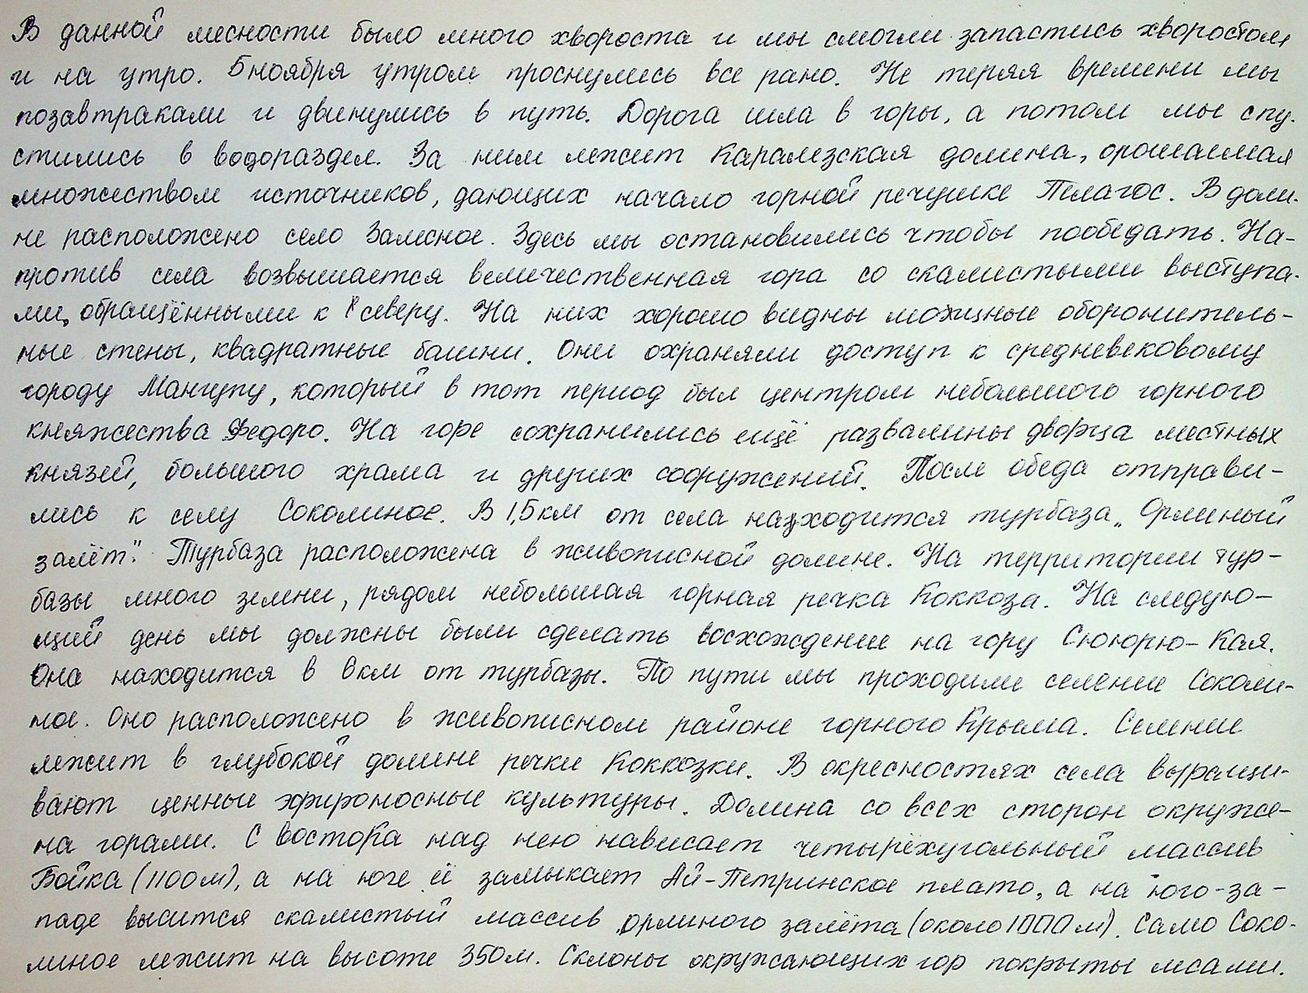 В данной месности было много хвороста и мы смогли запастись хворостом
и на утро. 5 ноября утром проснулись все рано. Не теряя времени мы
позавтракали и двинулись в путь. Дорога шла в горы, а потом мы спу-
стились в водораздел. За ним лежит Каралезская долина, орошаемая
множеством источников, дающих начало горной речушке Пелагос. В доли-
не расположено село Залесное. Здесь мы остановились чтобы пообедать. На-
против села возвышается величественная гора со скалистыми выступа-
ми, обращёнными к северу. На них хорошо видны мощные оборонитель-
ные стены, квадратные башни. Они охраняли доступ к средневековому
городу Мангупу, который в тот период был центром небольшого горного
княжества Федоро. На горе сохранились ещё развалины дворца местных
князей, большого храма и других сооружений. После обеда отправи-
лись к селу Соколиное. В 1,5 км от села находится турбаза „Орлиный
залёт". Турбаза расположена в живописной долине. На территории тур-
базы много зелени, рядом небольшая горная речка Коккоза. На следую-
щий день мы должны были сделать восхождение на гору Сююрю-Кая.
Она находится в 8 км от турбазы. По пути мы проходили селение Соколи-
ное. Оно расположено в живописном районе горного Крыма. Селение
лежит в глубокой долине речки Коккозки. В окресностях села выращи-
вают ценные эфироносные культуры. Долина со всех сторон окруже-
на горами. С востока над нею нависает четырёхугольный массив
Бойка (1100 м), а на юге её замыкает Ай-Петринское плато, а на юго-за-
паде высится скалистый массив орлиного залёта (около 1000 м). Само Соко-
линое лежит на высоте 350 м. Склоны окружающих гор покрыты лесами.